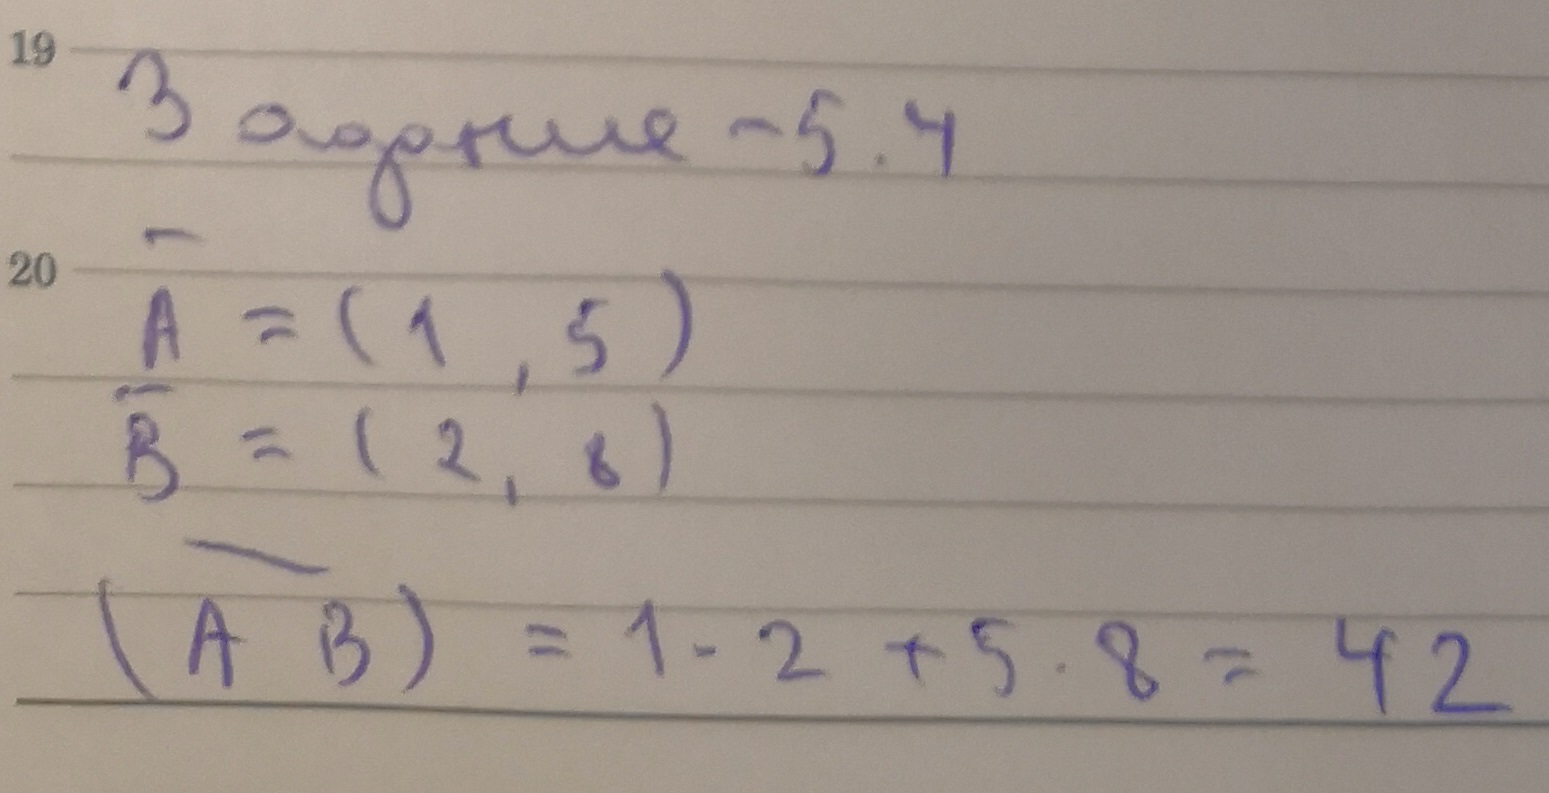 19
Задание - 5.4
20
A = (1, 5)
B = (2, 8)
(A B) = 1 · 2 + 5 · 8 = 42